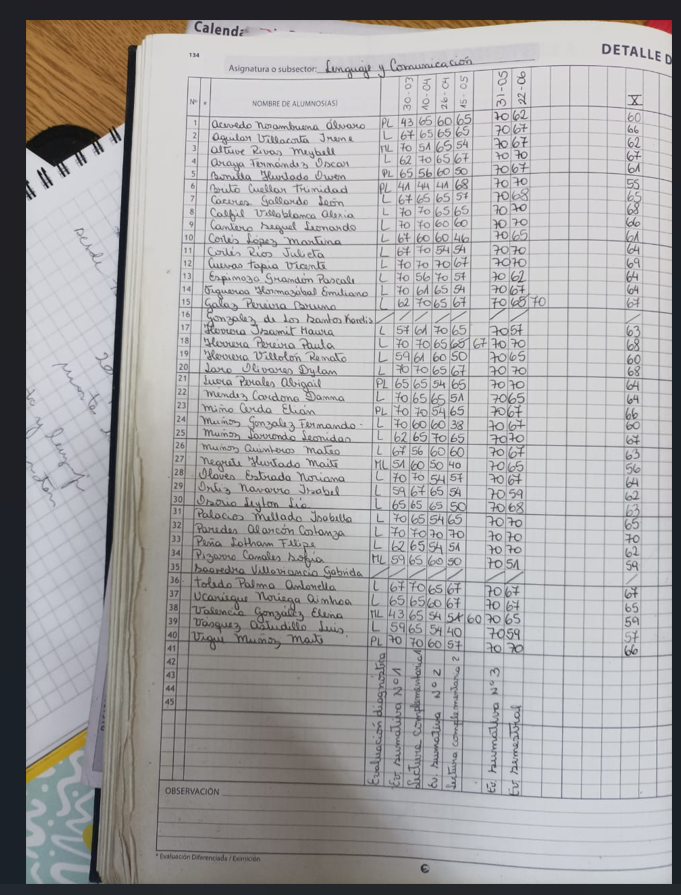 Calenda
134
DETALLE D
Asignatura o subsector: Lenguaje y Comunicación
30-03 10-04 26-04 15-05 31-05 22-06
Nº * NOMBRE DE ALUMNOS(AS) X
1 Acevedo Norambuena Álvaro PL 43 65 60 65 70 62 60
2 Aguilar Villacorta Irene L 67 65 65 65 70 67 66
3 Altuve Rivas Meybell ML 70 51 65 54 70 67 62
4 Araya Fernández Oscar L 62 70 65 67 70 70 67
5 Bonilla Hurtado Owen PL 65 56 60 50 70 67 61
6 Brito Cuellar Trinidad PL 41 44 41 68 70 70 55
7 Cáceres Gallardo León L 67 65 65 57 70 68 65
8 Calfil Villablanca Alexia L 70 70 65 65 70 70 68
9 Cantero Seguel Leonardo L 70 70 60 60 70 70 66
10 Cortés López Martina L 67 60 60 46 70 65 61
11 Cortés Ríos Julieta L 67 70 54 54 70 70 64
12 Cuevas Tapia Vicente L 70 70 70 67 70 70 69
13 Espinoza Grandón Pascale L 70 56 70 57 70 62 64
14 Figueroa Hormazabal Emiliano L 70 61 65 54 70 67 64
15 Galaz Pereira Bruno L 62 70 65 67 70 68 70 67
16 Gonzalez de Los Santos
17 Herrera Isamit Maura L 57 61 70 65 70 57 63
18 Herrera Pereira Paula L 70 70 65 65 67 70 70 68
19 Herrera Villolón Renato L 59 61 60 50 70 65 60
20 Jara Olivares Dylan L 70 70 65 67 70 70 68
21 Perales Abigail PL 65 65 54 65 70 70 64
22 Mendez Cardona Danna L 70 65 65 51 70 65 64
23 Miño Cerda Elián PL 70 70 54 65 70 67 66
24 Muñoz Gonzalez Fernando L 70 60 60 38 70 67 60
25 Muñoz Larrondo Leonidas L 62 65 70 65 70 70 67
26 Muñoz Quinteros Mateo L 67 56 60 60 70 67 63
27 Negrete Hurtado Maite ML 51 60 50 40 70 65 56
28 Olaves Estrado Noriana L 70 70 54 57 70 67 64
29 Ortiz Navarro Isabel L 59 67 65 54 70 59 62
30 Osorio Leyton Lía L 65 65 65 50 70 68 63
31 Palacios Mellado Isabella L 70 65 54 65 70 70 65
32 Paredes Alarcón Costanza L 70 70 70 70 70 70 70
33 Peña Lotham Felipe L 62 65 54 51 70 70 62
34 Pizarro Canales Sofía ML 59 65 60 50 70 51 59
35 Saavedra Villavicencio Gabriela
36 Toledo Palma Antonella L 67 70 65 67 70 67 67
37 Ucariegue Noriega Ainhoa L 65 65 60 67 70 67 65
38 Valencia González Elena ML 43 65 54 54 60 70 65 59
39 Vásquez Astudillo Luis L 59 65 54 40 70 59 57
40 Muñoz Maite PL 70 70 60 57 70 70 66
41
42
43
44
45
Evaluación diagnóstica
Ev. sumativa Nº 1
Lectura complementaria 1
Ev. sumativa Nº 2
Lectura complementaria 2
Ev. sumativa Nº 3
Ev. semestral
OBSERVACIÓN
* Evaluación Diferenciada / Eximición